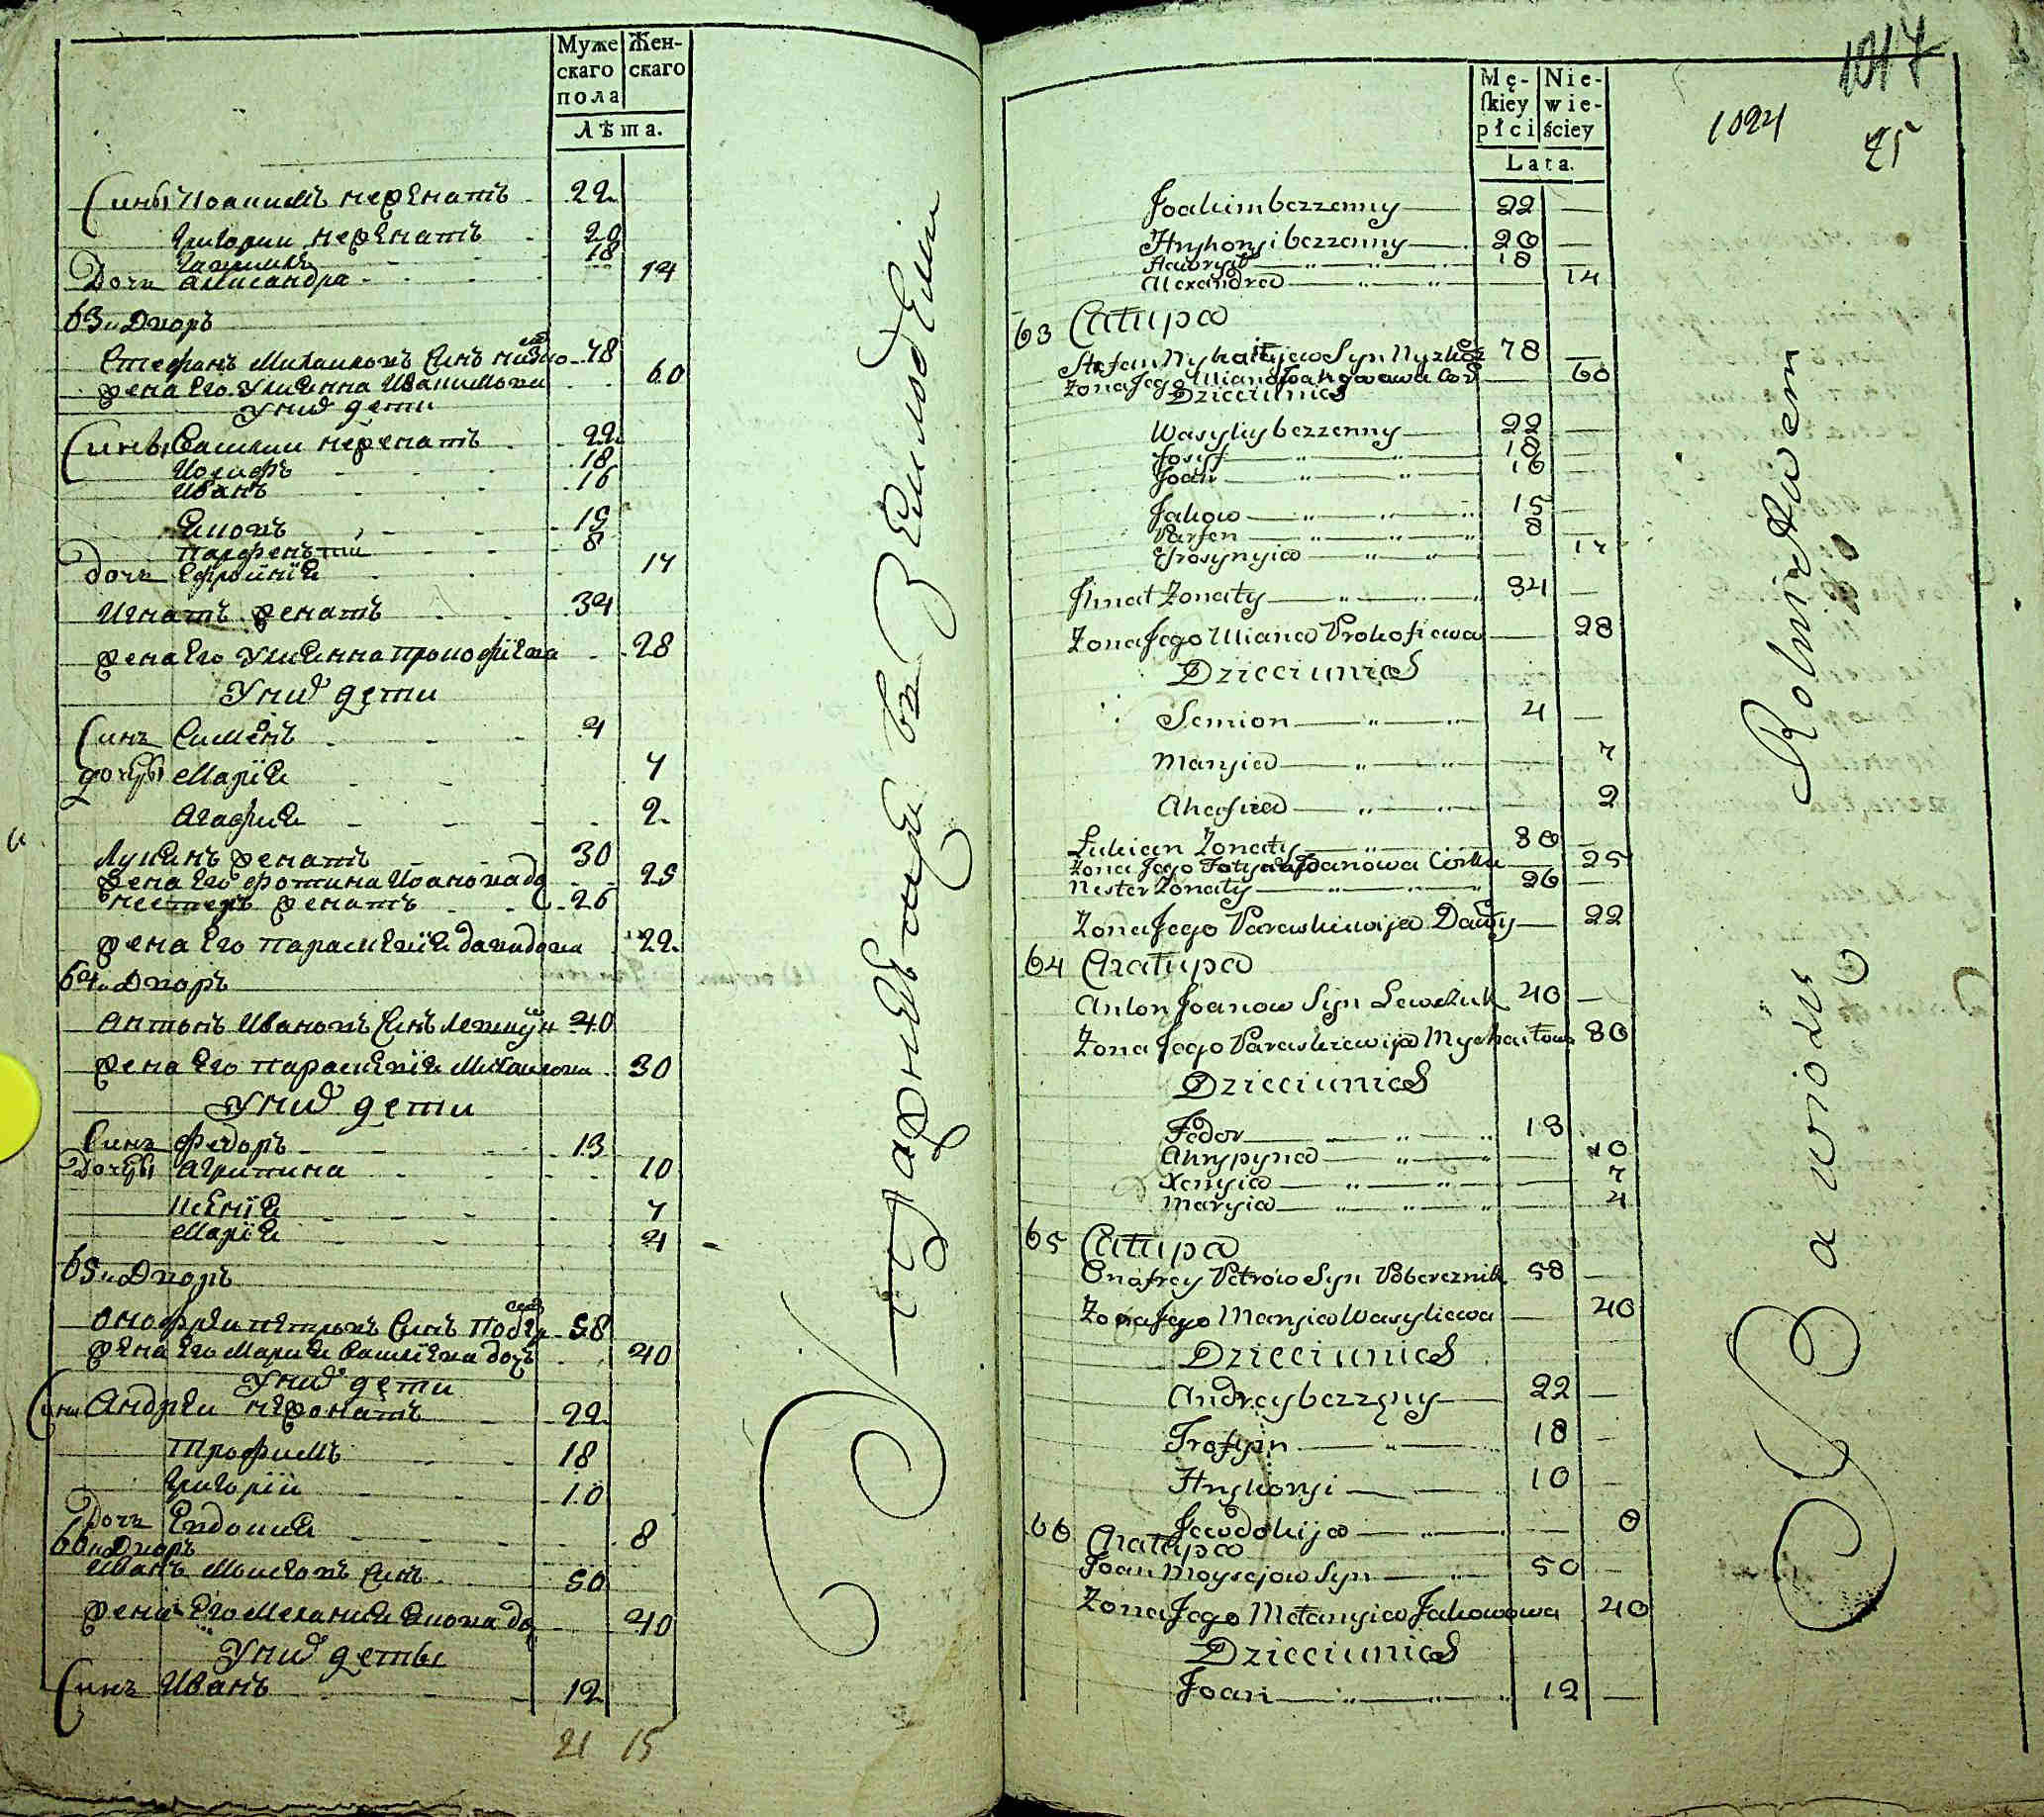 Муже
скаго
пола
Жен-
скаго
Лѣта.
Синъ Иоакимъ неженатъ 22
Григории неженатъ 20
Гаврилъ 18
Дочь Александра 14
63й Дворъ
Стефанъ Михаиловъ Синъ 78
жена Его Улиянна 60
У нихъ дети
Сины Василии неженатъ 22
Иосифъ 18
Иванъ 16
Яковъ 15
Парфентии 8
дочь Ефросинїя 14
Игнатъ женатъ 34
жена Его Улиянна Прокофїева 28
У нихъ дети
Синъ Симеонъ 4
дочери Марїя 7
Агафия 2
Лукиянъ женатъ 30
жена Его Фотина Иванова до 25
Нестеръ женатъ 26
жена Его Параскевїя давидова 22
64й Дворъ
Антонъ Ивановъ Синъ 40
жена Его Параскевїя Михаилова 30
У нихъ дети
Синъ Федоръ 13
Дочери Агрипина 10
Ксенїя 7
Марїя 4
65й Дворъ
Онофреи Петровъ Синъ 58
жена Его Мария Василїева дочь 40
У нихъ дети
Сины Андреи неженатъ 22
Трофимъ 18
Григорїи 10
Дочь Евдокия 8
66й Дворъ
Иванъ Моисеовъ Синъ 50
жена Его Мелания Якова до 40
У нихъ деты
Синъ Иванъ 12
21 15
Упражняющи ся въ Земледелии
1017
1024
75
Mę-
skiey
płci
Nie-
wie-
ściey
Lata.
Joakim bezzenny 22
Hryhoryi bezzenny 20
Hawryło 18
Alexandra 14
63 Chałupa
Stefan Mychaiłyiew Syn 78
Zona Jego Uliana 60
Dzieci u nich
Wasyliy bezzenny 22
Josyf 18
Joan 16
Jakow 15
Parfen 8
Efrosynyia 14
Hnat Zonaty 34
Zona Jego Uliana Prokofiewa 28
Dzieci u nich
Semion 4
Maryia 7
Ahafiia 2
Lukian Zonaty 30
Zona Jego Fotyna Joanowa Corka 25
Nester Zonaty 26
Zona Jego Paraskiewija Dawy 22
64 Chałupa
Anton Joanow Syn Lewczuk 40
Zona Jego Paraskiewija Mychaiłow 30
Dzieci u nich
Fedor 13
Ahrypyna 10
Xenyia 7
Maryia 4
65 Chałupa
Onafrey Petrow Syn Pobereznik 58
Zona Jego Maryia Wasyliewa 40
Dzieci u nich
Andrey bezzęny 22
Trofym 18
Hryhoryi 10
Jewdokija 8
66 Chałupa
Joan Moysejow Syn 50
Zona Jego Mełanyia Jakowowa 40
Dzieci u nich
Joan 12
Bawiących się Rolnictwem